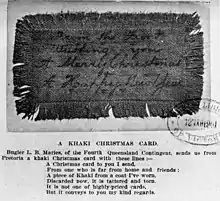 From the Front
Wishing you
A Merry Christmas
A KHAKI CHRISTMAS CARD.
Bugler L. B. Maries, of the Fourth Queensland Contingent, sends us from
Pretoria a khaki Christmas card with these lines :—
A Christmas card to you I send,
From one who is far from home and friends :
A piece of Khaki from a coat I've worn,
Discarded now, it is tattered and torn.
It is not one of highly-priced cards,
But it conveys to you my kind regards